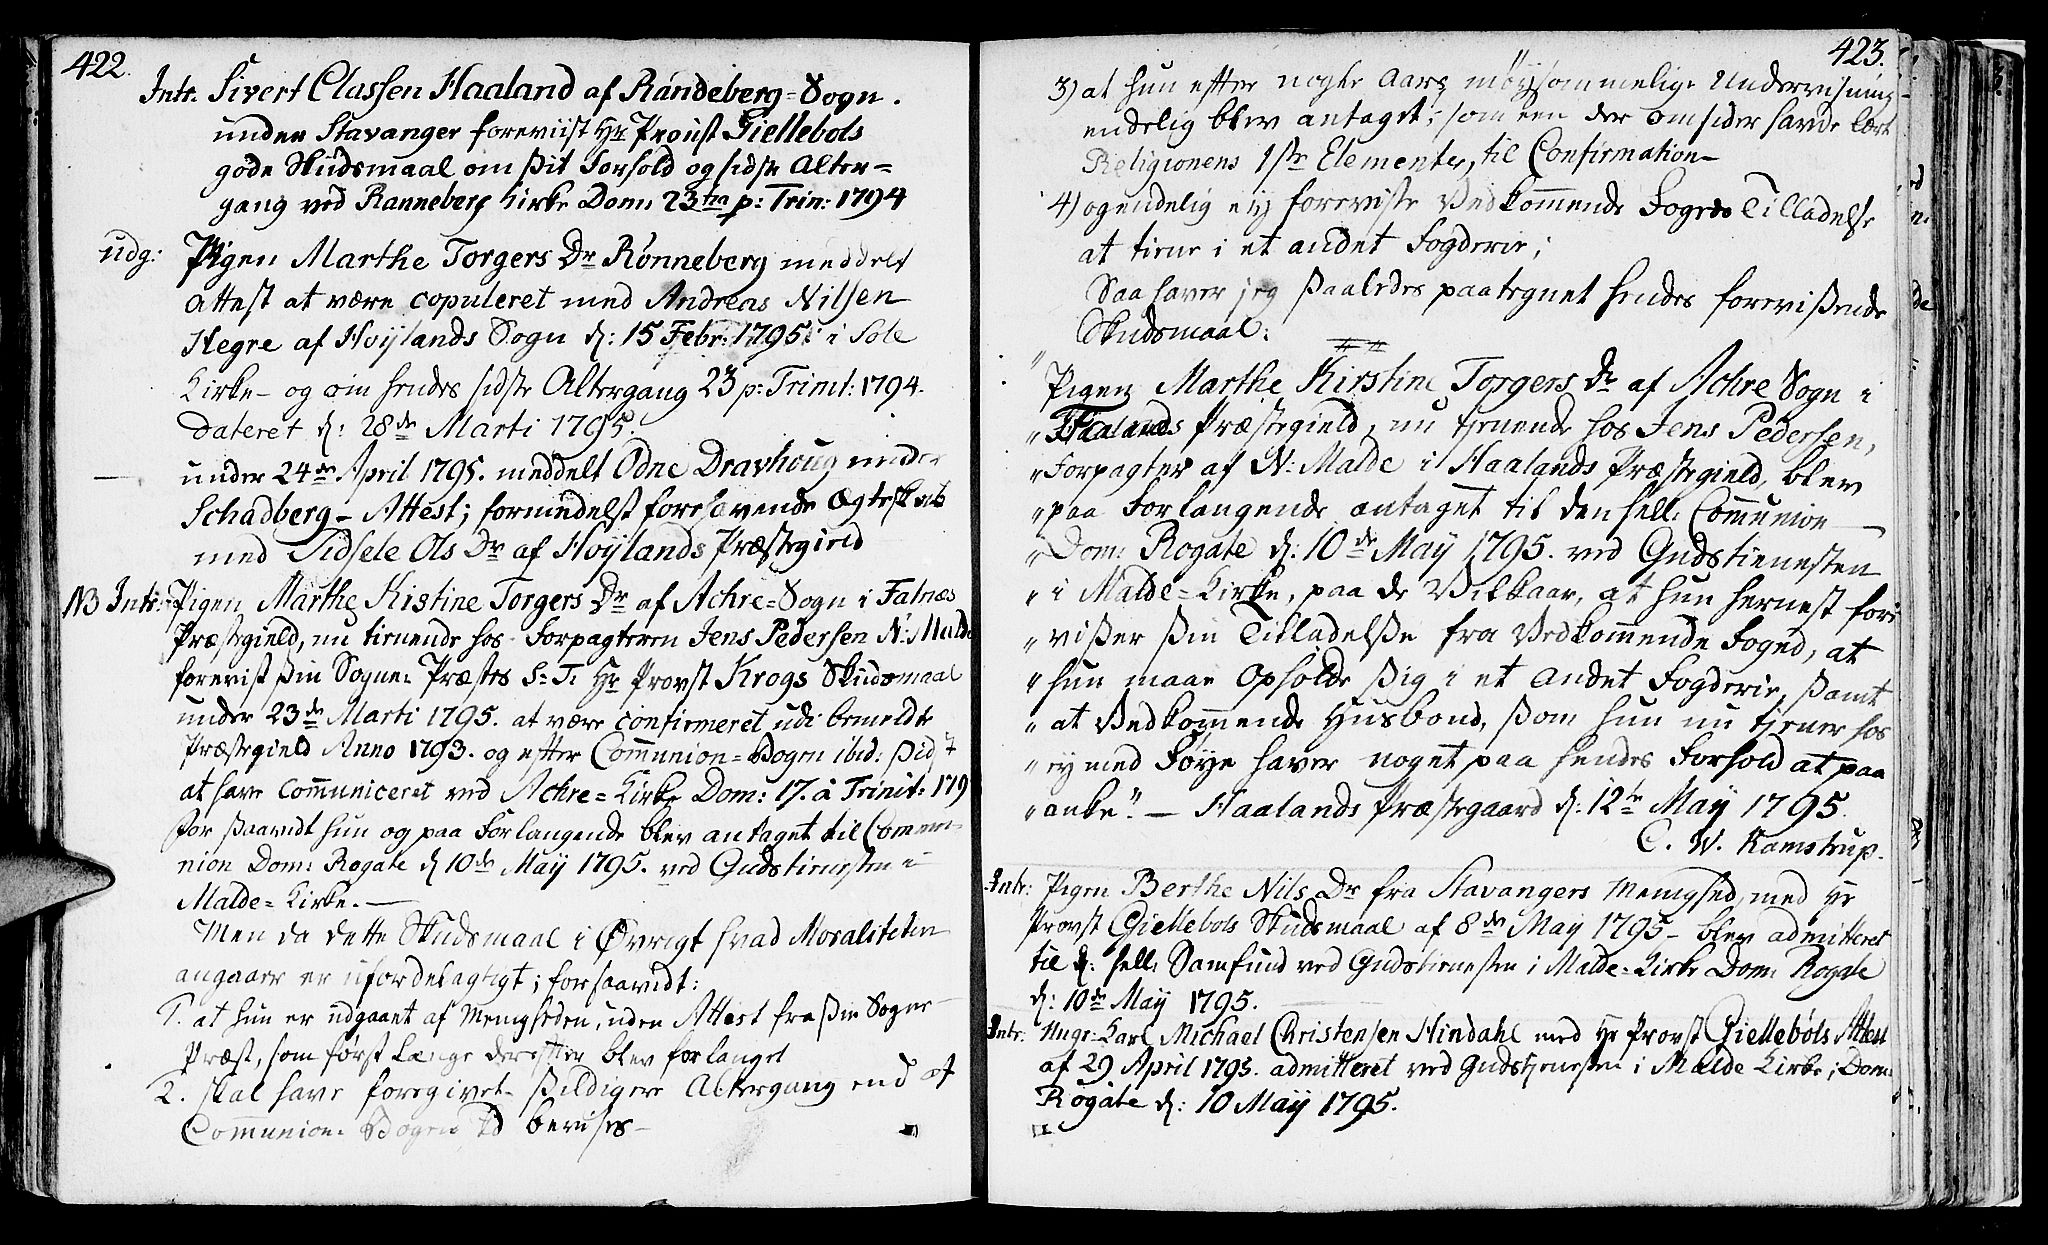 422.
Intr. Sivert Classen Haaland af Randeberg-Sogn.
under Stavanger foreviist Hr Proust Giellebols
gode Skudsmaal om sit Forhold og sidste Alter-
gang ved Ranneberg Kirke Dom: 23tia p: Trin: 1794
udg: Pigen Marthe Torgers Dr Rønneberg meddelt
Attest at være copuleret med Andreas Nilsen
Hegre af Hoÿlands Sogn d: 15 Febr: 1795 i Sole
Kirke - og om hendes sidste Altergang 23 p: Trinit: 1794.
dateret d: 28de Marti 1795.
under 24de April 1795. meddelt Odne Dravhoug neder
Schadberg - Attest; formedelst forehavende Ægteskab
med Sidsele Ols Dr af Hoÿlands Præstegield
NB Intr: Pigen Marthe Kistine Torgers Dr af Achre-Sogn i Falnæs
Præstegield, nu tienende hos Forpagteren Jens Pedersen N: Malde
forevist sin Sogne-Præstes S: T: Hr Provst Krogs Skudsmaal
under 23de Marti 1795. at være confirmeret udi bemeldte
Præstegield Anno 1793. og efter Communion-Bogen ibid: sidst
at have Communiceret ved Achre-Kirke Dom: 17. à Trinit: 179
for saavidt hun og paa Forlangende blev antaget til Commu-
nion Dom: Rogate d 10de Maÿ 1795. ved Gudstienesten i
Malde-Kirke. —
Men da dette Skudsmaal i Øvrigt hvad Moraliteten
angaaer er ufordelagtigt; forsaavidt:
1. at hun er udgaaet af Menigheden, uden Attest fra sin Sogne
Præst, som først længe derefter blev forlanget
2. skal have foregivet sildigere Altergang end af
Communion-Bogen bevises -
423.
3) at hun efter nogle Aars møÿsommelige Underviisning
endelig blev antaget, som een der omsider havde lært
Religionens 1ste Elementer, til Confirmation -
4) og endelig eÿ foreviste Vedkommende Fogeds Tilladelse
at tiene i et andet Fogderie;
Saa haver jeg saaledes paategnet hendes forevisende
Skudsmaal:
" Pigen Marthe Kirstine Torgers Dr af Achre Sogn i
" Haalands Præstegield, nu tienende hos Jens Pedersen,
" Forpagter af N: Malde i Haalands Præstegield, blev
" paa Forlangende antaget til den hell: Communion
" Dom: Rogate d: 10de Maÿ 1795. ved Gudstienesten
" i Malde-Kirke, paa de Vilkaar, at hun hernest fore
" viser sin Tilladelse fra Vedkommende Foged, at
" hun maae Opholde sig i et andet Fogderie, samt
" at Vedkommende Husbond, som hun nu tjener hos
" eÿ med Føÿe haver noget paa hendes Forhold at paa
" anke." — Haalands Præstegaard d: 12te Maÿ 1795.
C. W. Ramstrup.
Intr: Pigen Berthe Nils Dr fra Stavangers Menighed, med Hr
Provst Giellebols Skudsmaal af 8de Maÿ 1795 - blev admitteret
til d: hell: Samfund ved Gudstienesten i Malde-Kirke Dom: Rogate
d: 10de Maÿ 1795.
Intr: Unge-Karl Michael Christensen Hindahl med Hr Provst Giellebøls Attest
af 29 April 1795. admitteret ved Gudstjenesten i Malde Kirke; Dom:
Rogate d: 10 Maÿ 1795.